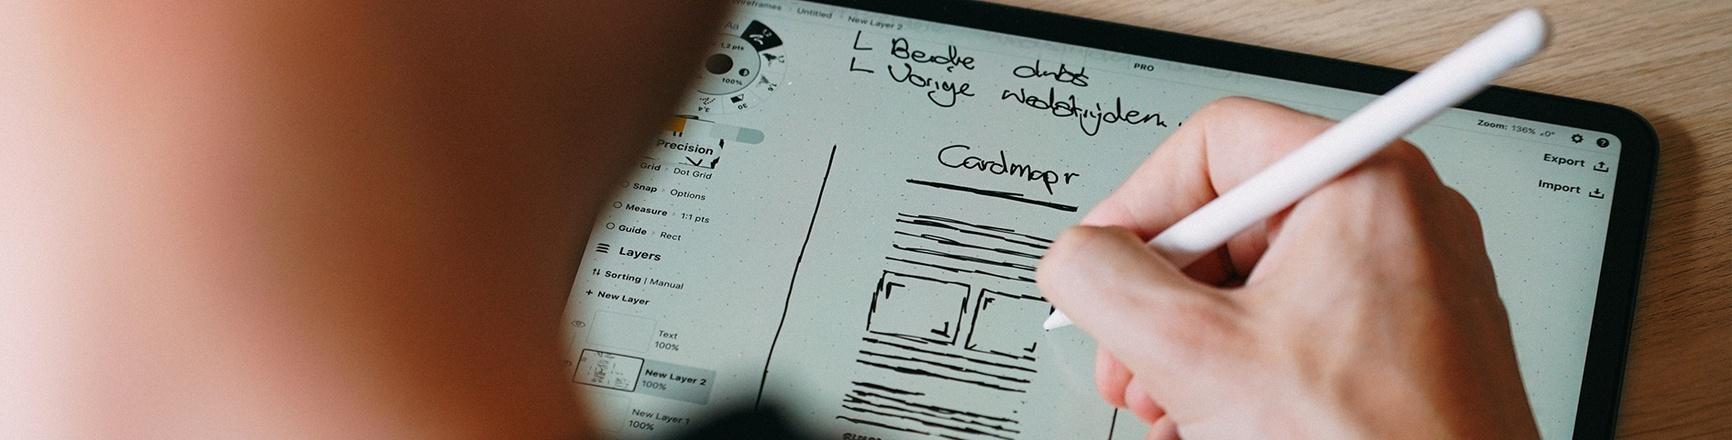 Wireframes › Untitled › New Layer 2
Aa
1,2 pts
100%
L Beide clubs
L Vorige wedstrijden
PRO
Zoom: 136% ∠0°
Export
Import
Precision
Grid › Dot Grid
Snap › Options
Measure › 1:1 pts
Guide › Rect
Layers
Sorting | Manual
+ New Layer
Text
100%
New Layer 2
100%
New Layer 1
100%